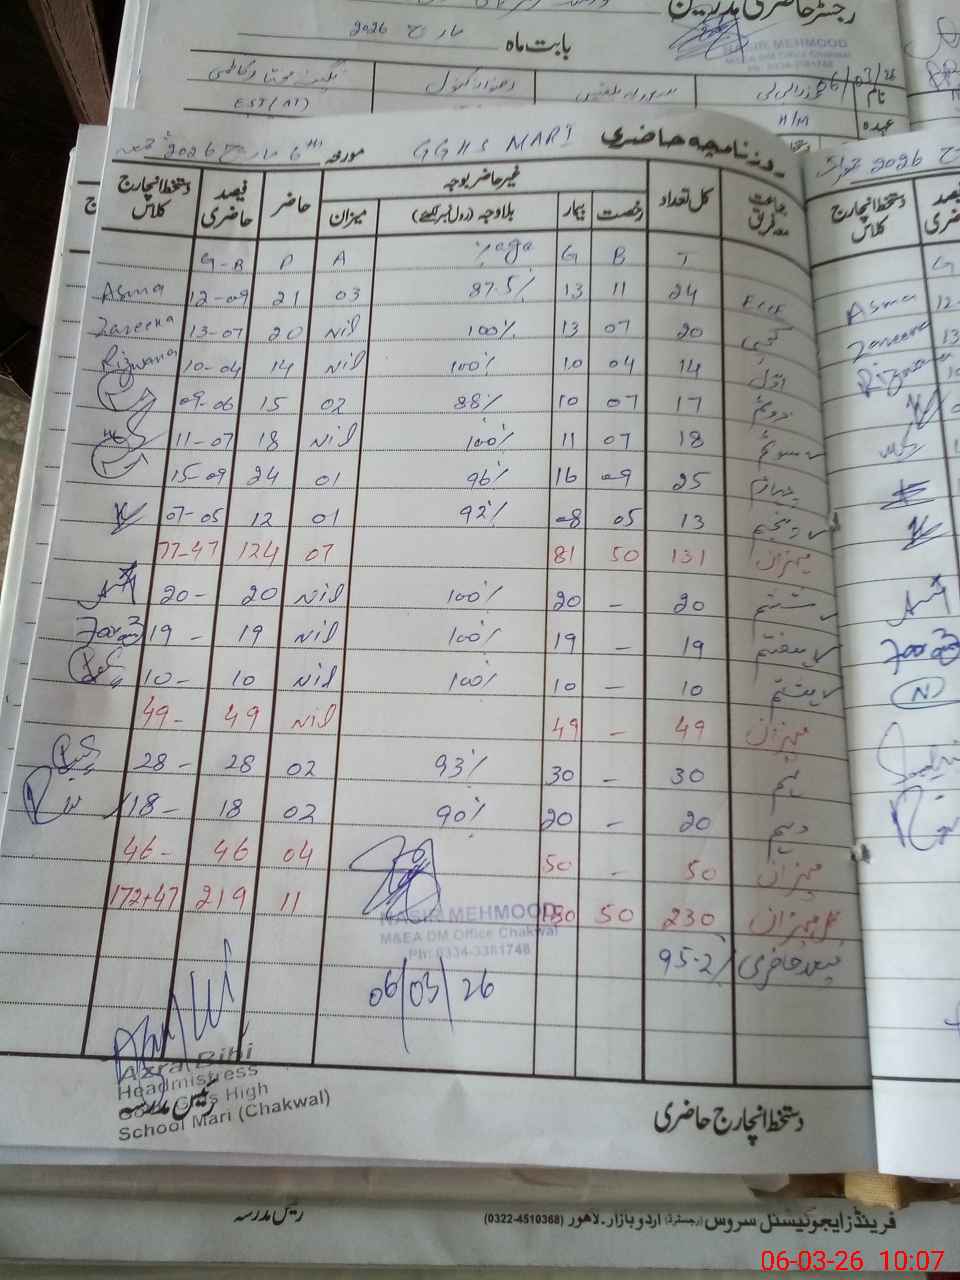 رجسٹر حاضری مدرسین
بابت ماہ مارچ 2026
NASIR MEHMOOD
M&EA DM Office Chakwal
06/03/26
نام
EST(AT)
H/M
عہدہ
روزنامچہ حاضری GGHS MARI مورخہ 6th مارچ 2026 جمعہ
جماعت معہ فریق کل تعداد غیر حاضر بوجہ حاضر فیصد حاضری دستخط انچارج کلاس
رخصت بیمار بلاوجہ (رول نمبر لکھئے) میزان
T B G %age A P G-B
ECCE 24 11 13 87.5% 03 21 12-09 Asma
کچی 20 07 13 100% Nil 20 13-07 Zareena
اوّل 14 04 10 100% Nil 14 10-04 Rizwana
دوئم 17 07 10 88% 02 15 09-06
سوئم 18 07 11 100% Nil 18 11-07
چہارم 25 09 16 96% 01 24 15-09
پنجم 13 05 08 92% 01 12 07-05
میزان 131 50 81 07 124 77-47
ششم 20 – 20 100% Nil 20 20-
ہفتم 19 – 19 100% Nil 19 19-
ہشتم 10 – 10 100% Nil 10 10-
میزان 49 – 49 Nil 49 49-
نہم 30 – 30 93% 02 28 28-
دہم 20 – 20 90% 02 18 18-
میزان 50 - 50 04 46 46-
کل میزان 230 50 180 11 219 172+47
فیصد حاضری 95.2%
NASIR MEHMOOD
M&EA DM Office Chakwal
Ph: 0334-3381746
06/03/26
Azra Bibi
Headmistress
Govt. Girls High
School Mari (Chakwal)
رئیس مدرسہ
دستخط انچارج حاضری
2026
دستخط انچارج کلاس
Asma
Zareena
Rizwana
N
رئیس مدرسہ
فرینڈز ایجوکیشنل سروس (رجسٹرڈ) اردو بازار۔ لاہور (0322-4510368)
06-03-26 10:07